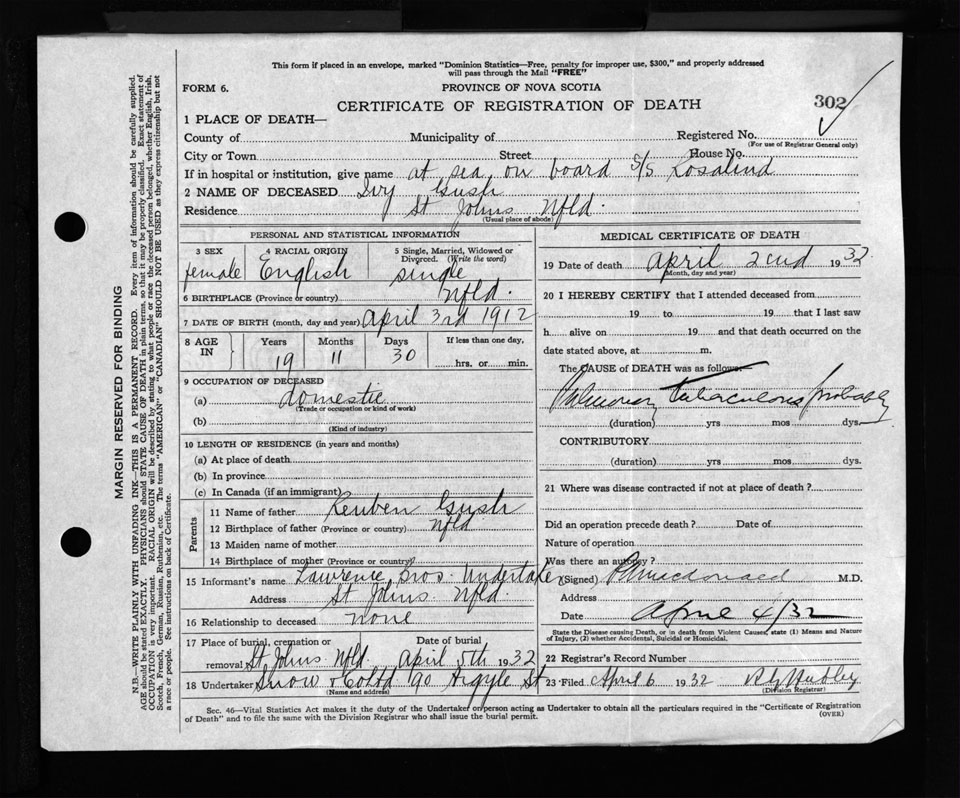 This form if placed in an envelope, marked "Dominion Statistics—Free, penalty for improper use, $300," and properly addressed
will pass through the Mail "FREE"
FORM 6. PROVINCE OF NOVA SCOTIA
CERTIFICATE OF REGISTRATION OF DEATH 302
1 PLACE OF DEATH—
County of Municipality of Registered No.
(For use of Registrar General only)
City or Town Street House No.
If in hospital or institution, give name at sea on board S/S Rosalind
2 NAME OF DECEASED Ivy Gush
Residence St Johns Nfld.
(Usual place of abode)
PERSONAL AND STATISTICAL INFORMATION
3 SEX 4 RACIAL ORIGIN 5 Single, Married, Widowed or Divorced. (Write the word)
female English single
6 BIRTHPLACE (Province or country) Nfld.
7 DATE OF BIRTH (month, day and year) April 3rd 1912
8 AGE IN Years Months Days If less than one day,
19 11 30 hrs. or min.
9 OCCUPATION OF DECEASED
(a) domestic
(Trade or occupation or kind of work)
(b)
(Kind of industry)
10 LENGTH OF RESIDENCE (in years and months)
(a) At place of death
(b) In province
(c) In Canada (if an immigrant)
Parents
11 Name of father Reuben Gush
12 Birthplace of father (Province or country) Nfld
13 Maiden name of mother
14 Birthplace of mother (Province or country)
15 Informant's name Lawrence Bros. Undertaker
Address St Johns Nfld.
16 Relationship to deceased none
17 Place of burial, cremation or removal Date of burial
St Johns Nfld. April 5th 1932
18 Undertaker Snow & Co Ltd 90 Argyle St
(Name and address)
MEDICAL CERTIFICATE OF DEATH
19 Date of death April 2nd 1932
(Month, day and year)
20 I HEREBY CERTIFY that I attended deceased from
19 to 19 that I last saw
h alive on 19 and that death occurred on
date stated above, at m.
The CAUSE of DEATH was as follows
Pulmonary Tuberculosis probably
(duration) yrs mos dys.
CONTRIBUTORY
(duration) yrs mos dys.
21 Where was disease contracted if not at place of death?
Did an operation precede death? Date of
Nature of operation
Was there an autopsy?
(Signed) Macdonald M.D.
Address
Date April 4/32
State the Disease causing Death, or in death from Violent Causes, state (1) Means and Nature
of Injury, (2) whether Accidental, Suicidal or Homicidal.
22 Registrar's Record Number
23 Filed April 6 1932
(Division Registrar)
Sec. 46—Vital Statistics Act makes it the duty of the Undertaker or person acting as Undertaker to obtain all the particulars required in the "Certificate of Registration
of Death" and to file the same with the Division Registrar who shall issue the burial permit.
(OVER)
MARGIN RESERVED FOR BINDING
N.B.—WRITE PLAINLY WITH UNFADING INK—THIS IS A PERMANENT RECORD. Every item of information should be carefully supplied.
AGE should be stated EXACTLY. PHYSICIANS should STATE CAUSE OF DEATH in plain terms, so that it may be properly classified. Exact statement of
OCCUPATION is very important. RACIAL ORIGIN will be described by stating to what people or race the deceased person belonged, whether English, Irish,
Scotch, French, German, Russian, Ruthenian, etc. The terms "AMERICAN" or "CANADIAN" SHOULD NOT BE USED as they express citizenship but not
a race or people. See instructions on back of Certificate.